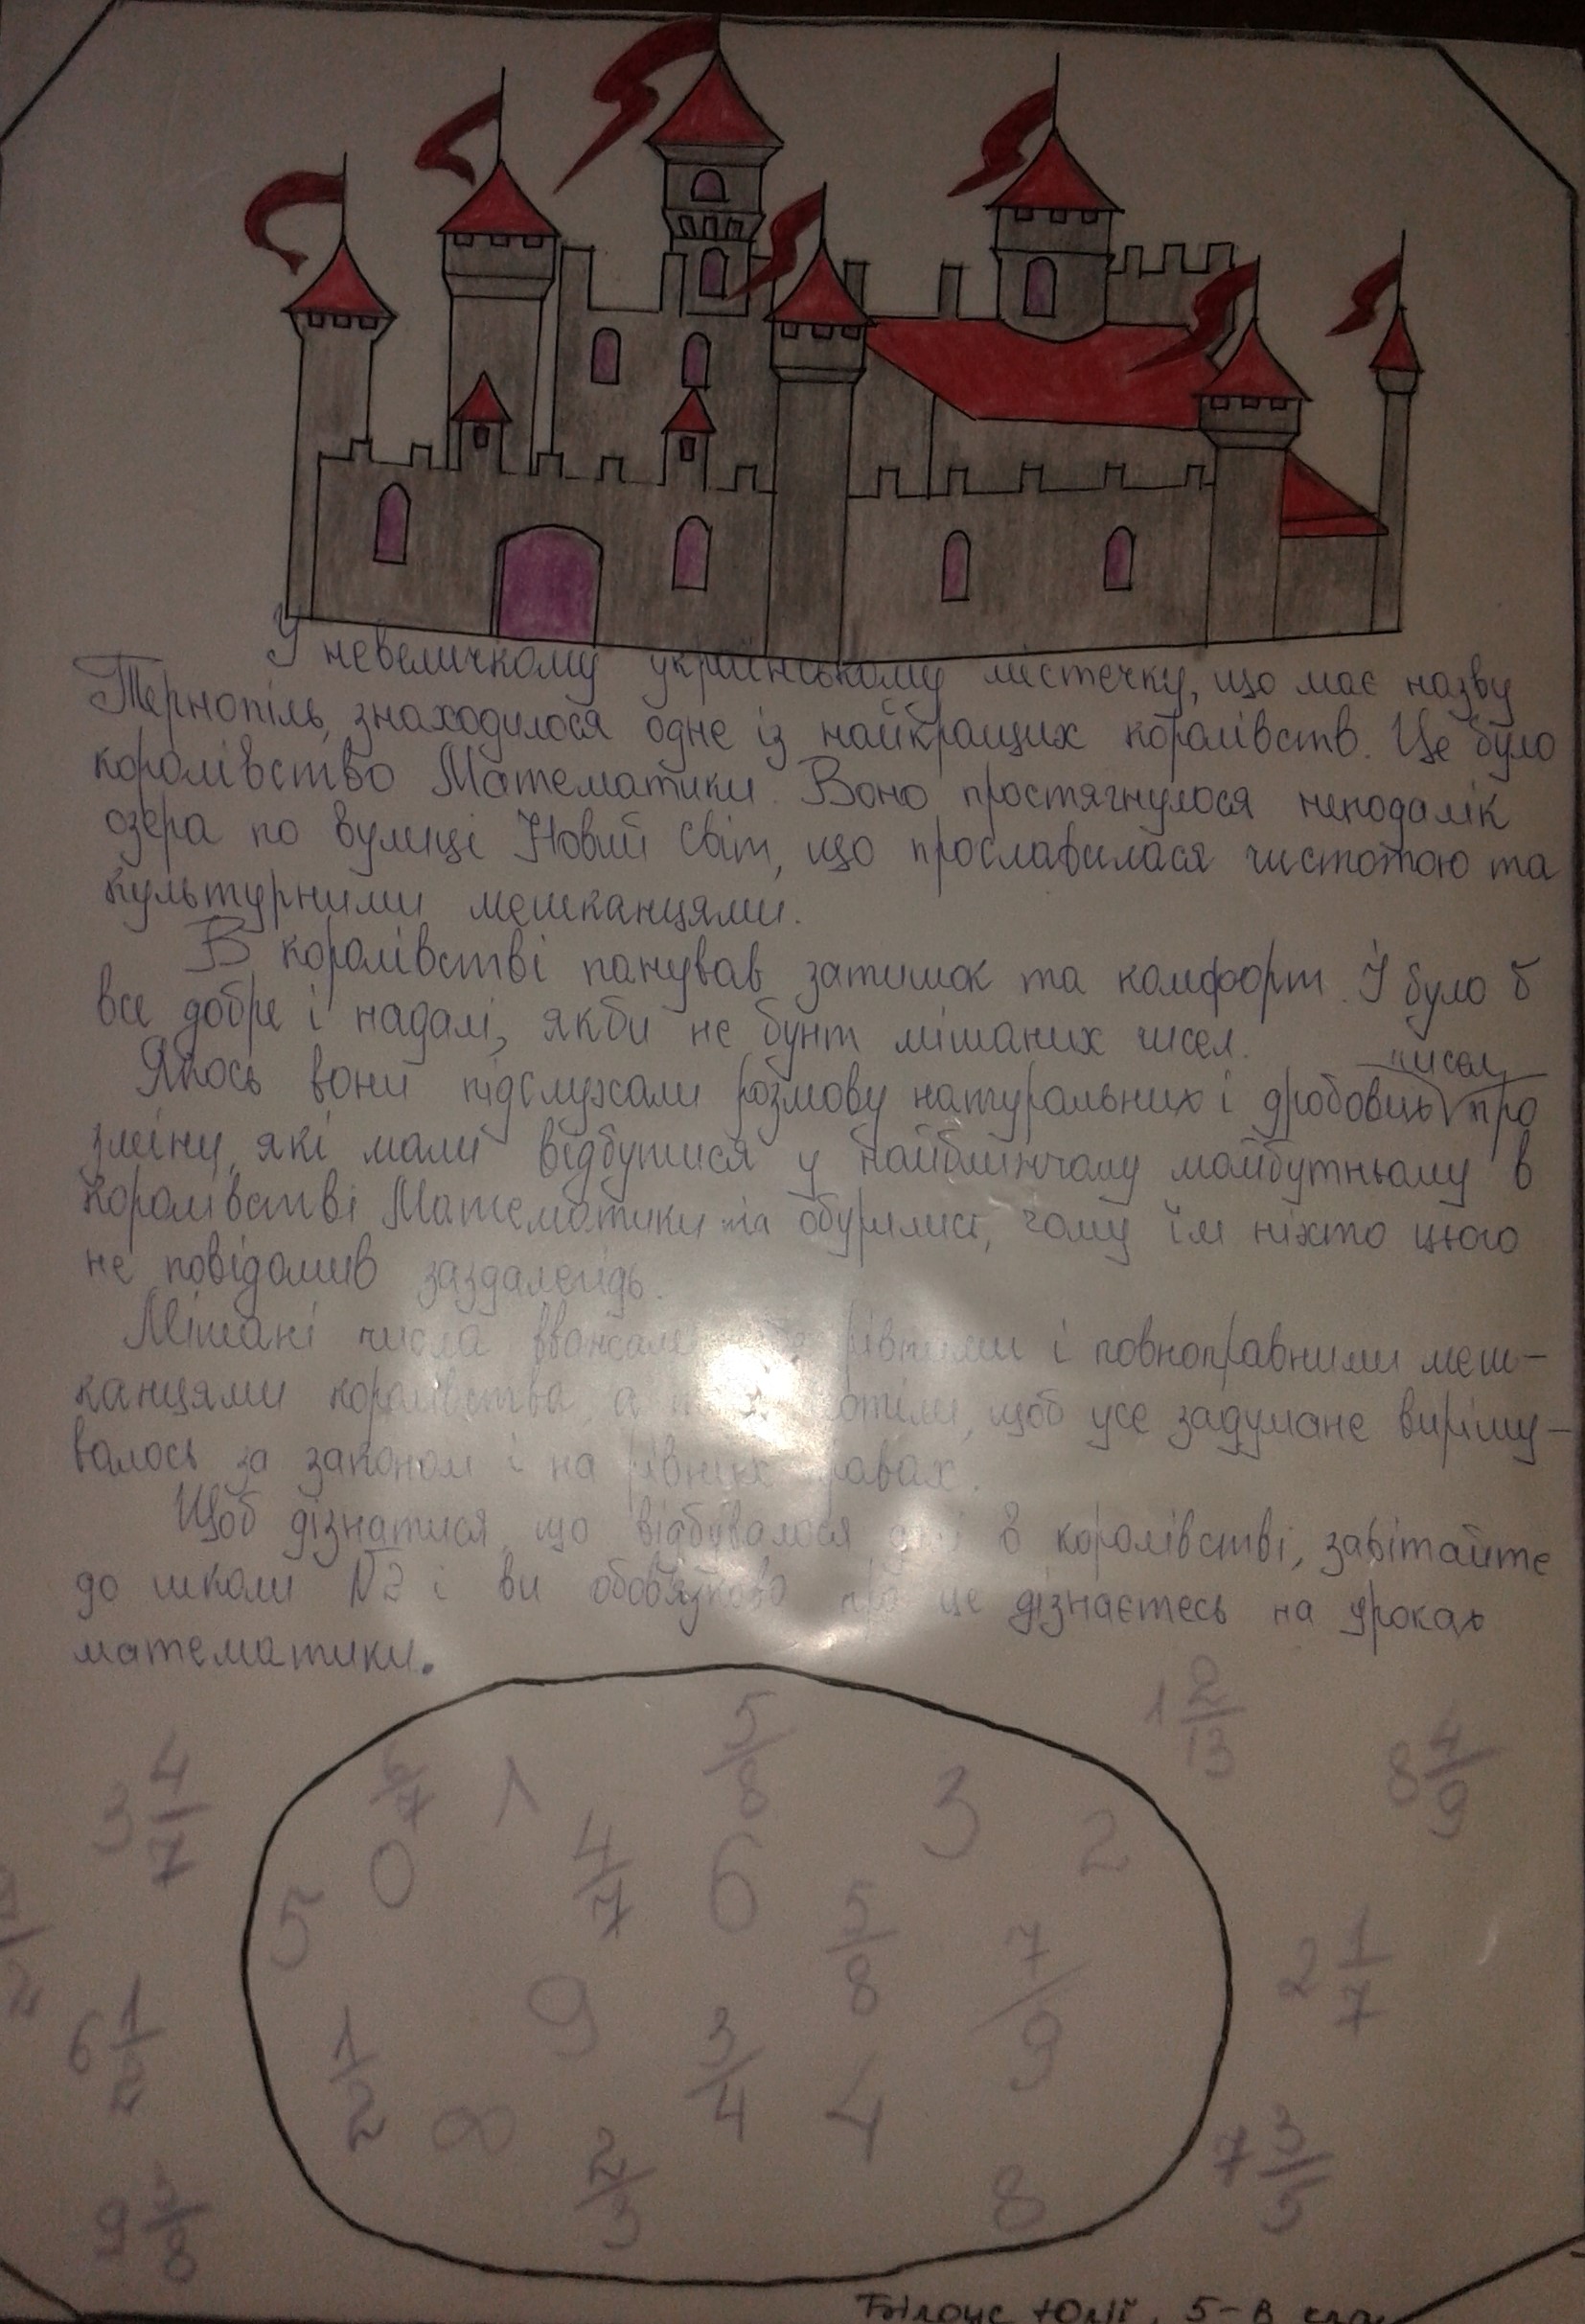 У невеличкому українському містечку, що має назву
Тернопіль, знаходилося одне із найкращих королівств. Це було
королівство Математики. Воно простягнулося неподалік
озера по вулиці Новий Світ, що прославилася чистотою та
культурними мешканцями.
В королівстві панував затишок та комфорт. І було б
все добре і надалі, якби не бунт мішаних чисел.
чисел
Якось вони підслухали розмову натуральних і дробових про
зміни, які мали відбутися у найближчому майбутньому в
королівстві Математики та обурились, чому їм ніхто цього
не повідомив заздалегідь.
Мішані числа вважали себе рівними і повноправними меш-
канцями королівства, а хотіли, щоб усе задумане вирішу-
валось за законом і на рівних правах.
Щоб дізнатися, що відбувалося далі в королівстві, завітайте
до школи і ви обов'язково про це дізнаєтесь на уроках
математики.
1 2/13
5/8
3 4/7 6/7 1 3 2 8 4/9
0 4/7 6
5 5/8 7/9 2 1/7
6 1/2 1/2 9 3/4 4
∞ 2/3 8 7 3/5
9 3/8
Білоус Юлії, 5-В